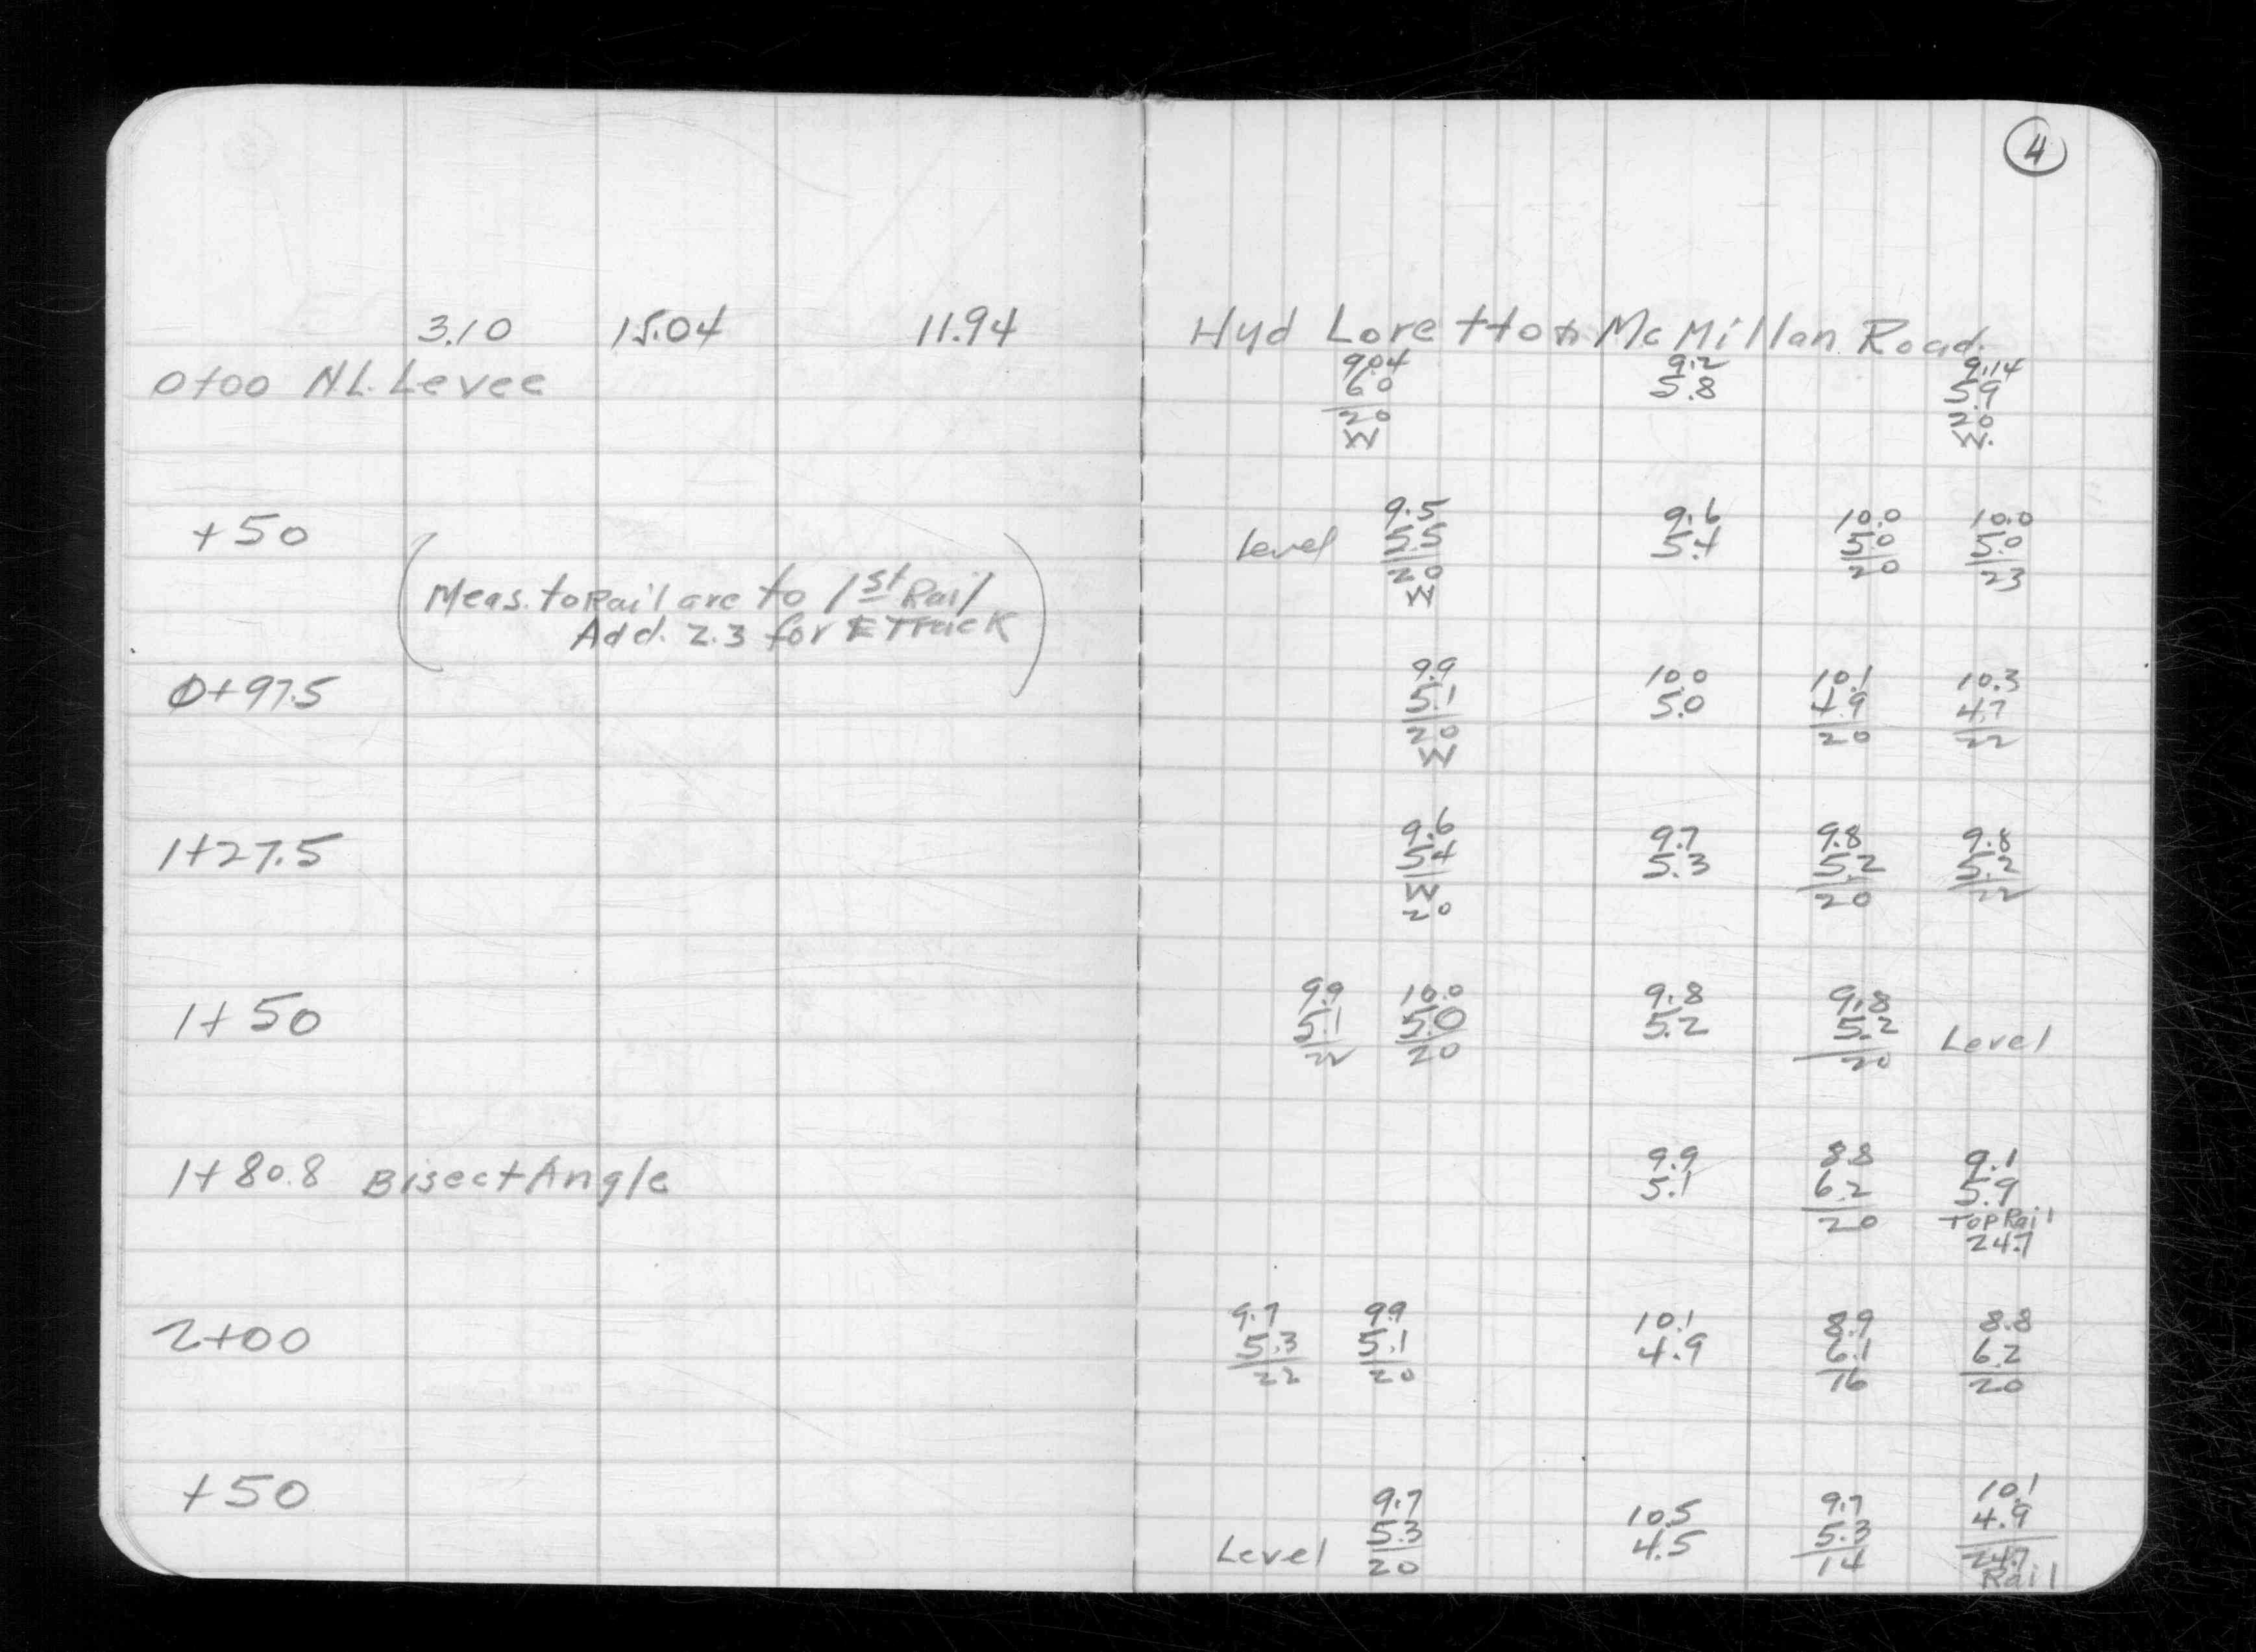 4
3.10 15.04 11.94 Hyd Loretto & McMillan Road.
9.04 9.2 9.14
0+00 N.L. Levee 6.0 5.8 5.9
20 20
W W.
9.5 9.6 10.0 10.0
+50 Level 5.5 5.4 5.0 5.0
20 20 23
W
(Meas. to Rail are to 1st Rail
Add. 2.3 for ℄ Track)
9.9 10.0 10.1 10.3
0+97.5 5.1 5.0 4.9 4.7
20 20 22
W
9.6 9.7 9.8 9.8
1+27.5 5.4 5.3 5.2 5.2
W 20 22
20
9.9 10.0 9.8 9.8
1+50 5.1 5.0 5.2 5.2 Level
22 20 20
9.9 8.8 9.1
1+80.8 Bisect Angle 5.1 6.2 5.9
20 Top Rail
24.7
9.7 9.9 10.1 8.9 8.8
2+00 5.3 5.1 4.9 6.1 6.2
22 20 16 20
9.7 10.5 9.7 10.1
+50 Level 5.3 4.5 5.3 4.9
20 14 24.7
Rail